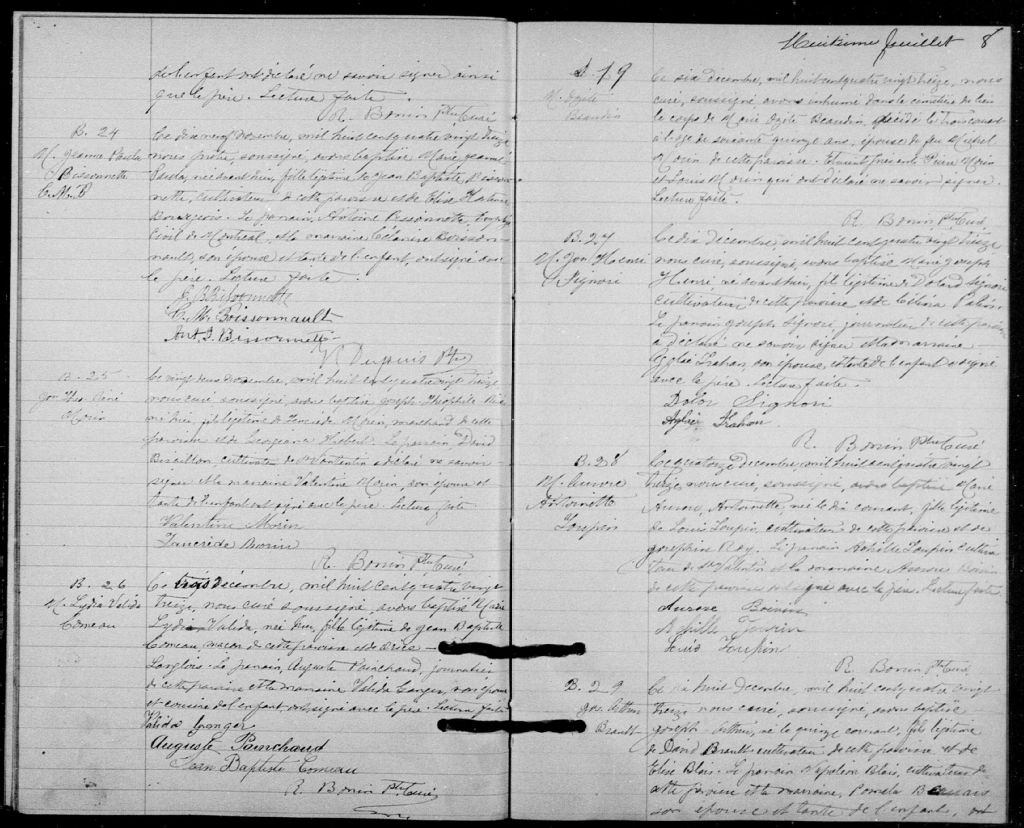 de l'enfant ont déclaré ne savoir signer ainsi
que le père. Lecture faite.
R. Bonin Ptre Curé
B. 24
M. Jeanne Paula
Bissonnette
C. M. B
Ce dix neuf novembre, mil huit cent quatre vingt treize
nous prêtre, soussigné, avons baptisé Marie Jeanne
Paula, née avant hier, fille légitime de Jean Baptiste Bisson
nette, cultivateur de cette paroisse et de Elise
Bourgeois. Le parrain, Antoine Bissonnette, employé
civil de Montréal, et la marraine, Célanire Boisson
nault, son épouse et tante de l'enfant, ont signé avec
le père. Lecture faite.
J. B Bissonnette
C. M. Boissonnault
Ant. J. Bissonnette
Dupuis Ptre
B. 25
Jos Théo. Réné
Morin
Ce vingt deux novembre, mil huit cent quatre vingt treize
nous curé soussigné, avons baptisé Joseph Théophile Réné
né hier, fils légitime de Tancrède Morin, marchand de cette
paroisse et de Georgeana Hébert. Le parrain David
cultivateur de St Valentin a déclaré ne savoir
signer et la marraine Valentine Morin, son épouse et
tante de l'enfant ont signé avec le père. Lecture faite
Valentine Morin
Tancrède Morin
R. Bonin Ptre Curé
B. 26
M. Lydia Valida
Comeau
Ce trois décembre, mil huit cent quatre vingt
treize, nous curé soussigné, avons baptisé Marie
Lydia Valida, née hier, fille légitime de Jean Baptiste
Comeau, maçon de cette paroisse et de
Langlois. Le parrain, Auguste Painchaud, journalier
de cette paroisse et la marraine Valida Granger, son épouse
et cousine de l'enfant, ont signé avec le père. Lecture faite
Valida Granger
Auguste Painchaud
Jean Baptiste Comeau
R. Bonin Ptre Curé
Huitième feuillet 8
S. 19
M. Ozite
Beaudin
Ce six décembre, mil huit cent quatre vingt treize, nous
curé, soussigné avons inhumé dans le cimetière de ce lieu
le corps de Marie Ozite Beaudin, décédée le trois courant
à l'âge de soixante quinze ans, épouse de feu Michel
Morin de cette paroisse. Etaient présents Pierre Morin
et Louis Morin qui ont déclaré ne savoir signer.
Lecture faite.
R. Bonin Ptre Curé
B. 27
M. Jos Henri
Signori
Ce dix décembre, mil huit cent quatre vingt treize
nous curé, soussigné, avons baptisé Marie Joseph
Henri né avant hier, fils légitime de Dolard Signori
cultivateur, de cette paroisse et de
Le parrain Joseph Signori, journalier de cette paroisse
a déclaré ne savoir signer et la marraine
Trahan, son épouse, et tante de l'enfant a signé
avec le père. Lecture faite.
Dolor Signori
Trahan
R. Bonin Ptre Curé
B. 28
M. Aurore
Antoinette
Toupin
Ce quatorze décembre, mil huit cent quatre vingt
treize, nous curé, soussigné, avons baptisé Marie
Aurore, Antoinette, née le dix courant, fille légitime
de Louis Toupin cultivateur de cette paroisse et de
Josephine Roy. Le parrain Achille Toupin cultiva
teur de St Valentin et la marraine Aurore Boivin
de cette paroisse ont signé avec le père. Lecture faite
Aurore Boivin
Achille Toupin
Louis Toupin
R. Bonin Ptre Curé
B. 29
Jos Arthur
Brault
Ce dix huit décembre, mil huit cent quatre vingt
treize, nous curé, soussigné, avons baptisé
Joseph Arthur, né le quinze courant, fils légitime
de David Brault cultivateur de cette paroisse et de
Elise Blais. Le parrain Napoléon Blais, cultivateur de
cette paroisse et la marraine, Pomela
son épouse et tante de l'enfant, ont